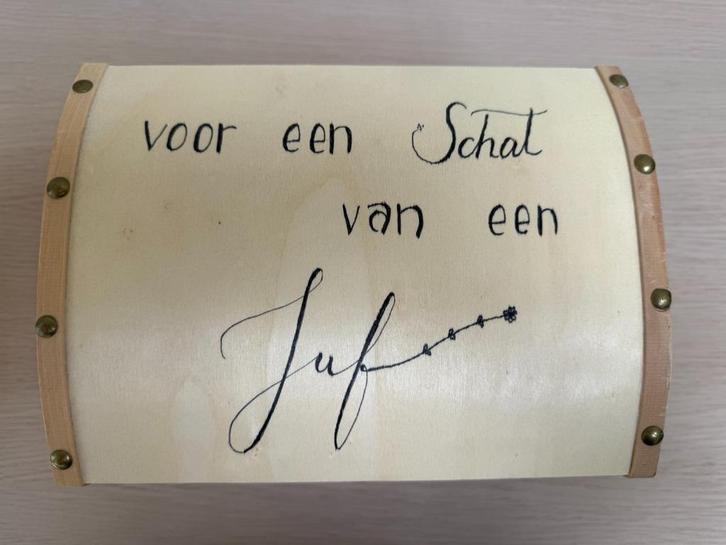 voor een Schat
van een
Juf